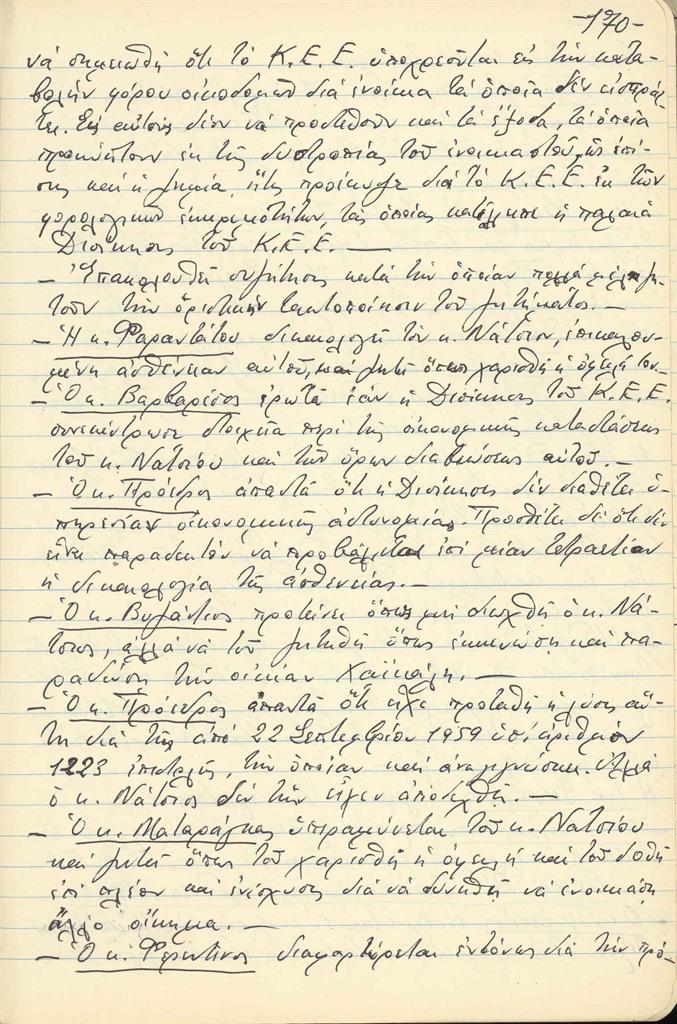 -170-
νά σημειωθῆ ὅτι τό Κ.Ε.Ε. ὑποχρεοῦται εἰς τήν κατα-
βολήν φόρου οἰκοδομῶν διά ἐνοίκια τά ὁποῖα δέν εἰσπράτ-
τει. Εἰς αὐτούς δέον νά προστεθοῦν καί τά ἔξοδα, τά ὁποῖα
προκύπτουν ἐκ τῆς δυστροπίας τοῦ ἐνοικιαστοῦ, ὡς ἐπί-
σης καί ἡ ζημία, ἥτις προέκυψε διά τό Κ.Ε.Ε. ἐκ τῶν
φορολογικῶν ἐκκρεμοτήτων, τάς ὁποίας κατέλιπε ἡ παλαιά
Διοίκησις τοῦ Κ.Ε.Ε. —
- Ἐπακολουθεῖ συζήτησις κατά τήν ὁποίαν πολλά μέλη ζη-
τοῦν τήν ὁριστικήν τακτοποίησιν τοῦ ζητήματος. —
- Ἡ κ. Φαραντάτου δικαιολογεῖ τόν κ. Νάτσιον, ἐπικαλου-
μένη ἀσθένειαν αὐτοῦ, καί ζητεῖ ὅπως χαρισθῆ ἡ ὀφειλή του-
- Ὁ κ. Βαρβαρέσος ἐρωτᾶ ἐάν ἡ Διοίκησις τοῦ Κ.Ε.Ε.
συνεκέντρωσε στοιχεῖα περί τῆς οἰκονομικῆς καταστάσεως
τοῦ κ. Νατσίου καί τῶν ὅρων διαβιώσεως αὐτοῦ. —
- Ὁ κ. Πρόεδρος ἀπαντᾶ ὅτι ἡ Διοίκησις δέν διαθέτει ὑ-
πηρεσίαν οἰκονομικῆς ἀστυνομίας. Προσθέτει δέ ὅτι δέν
εἶναι παραδεκτόν νά προβάλεται ἐπί μίαν τετραετίαν
ἡ δικαιολογία τῆς ἀσθενείας. —
- Ὁ κ. Βυζάντιος προτείνει ὅπως μή διωχθῆ ὁ κ. Νά-
τσιος, ἀλλά νά τοῦ ζητηθῆ ὅπως ἐκκενώσῃ καί πα-
ραδώσῃ τήν οἰκίαν Χαϊκάλη. —
- Ὁ κ. Πρόεδρος ἀπαντᾶ ὅτι εἶχε προταθῆ ἡ λύσις αὕ-
τη διά τῆς ἀπό 22 Σεπτεμβρίου 1959 ὑπ' ἀριθμόν
1223 ἐπιστολῆς, τήν ὁποίαν καί ἀναγιγνώσκει. Ἀλλά
ὁ κ. Νάτσιος δέν τήν εἶχεν ἀποδεχθῆ. —
- Ὁ κ. Ματαράγκας ὑπεραμύνεται τοῦ κ. Νατσίου
καί ζητεῖ ὅπως τοῦ χαρισθῆ ἡ ὀφειλή καί τοῦ δοθῆ
ἐπί πλέον καί ἐνίσχυσις διά νά δυνηθῆ νά ἐνοικιάσῃ
ἄλλο οἴκημα. —
- Ὁ κ. Φερεντῖνος διαμαρτύρεται ἐντόνως διά τήν πρό-